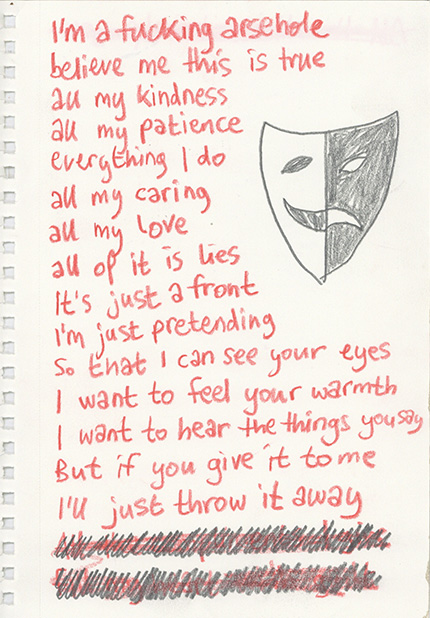 I'm a fucking arsehole
believe me this is true
all my kindness
all my patience
everything I do
all my caring
all my love
all of it is lies
It's just a front
I'm just pretending
So that I can see your eyes
I want to feel your warmth
I want to hear the things you say
But if you give it to me
I'll just throw it away